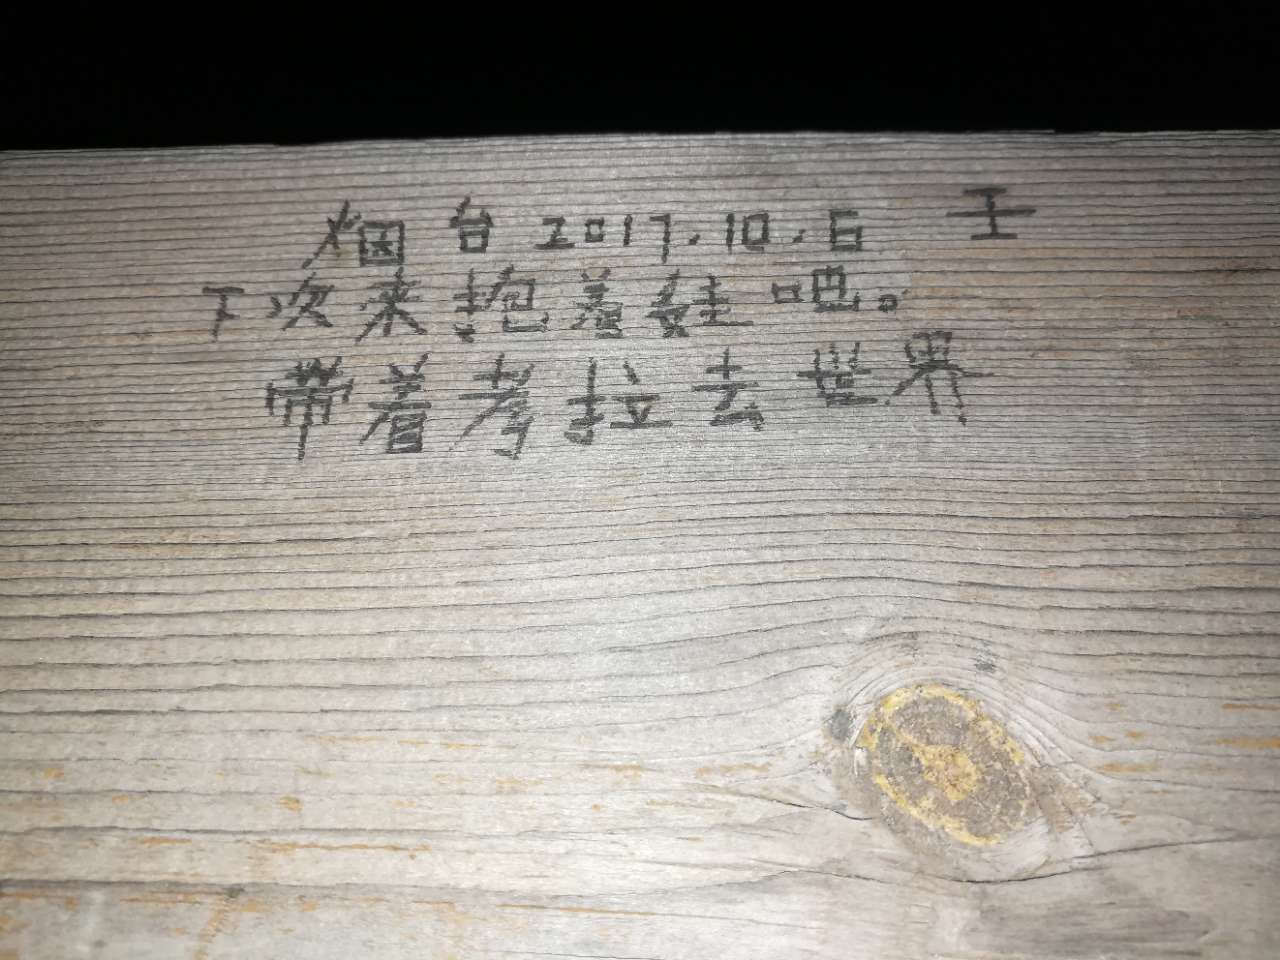 烟台 2017.10.6 王
下次来抱着娃吧。
带着考拉去世界